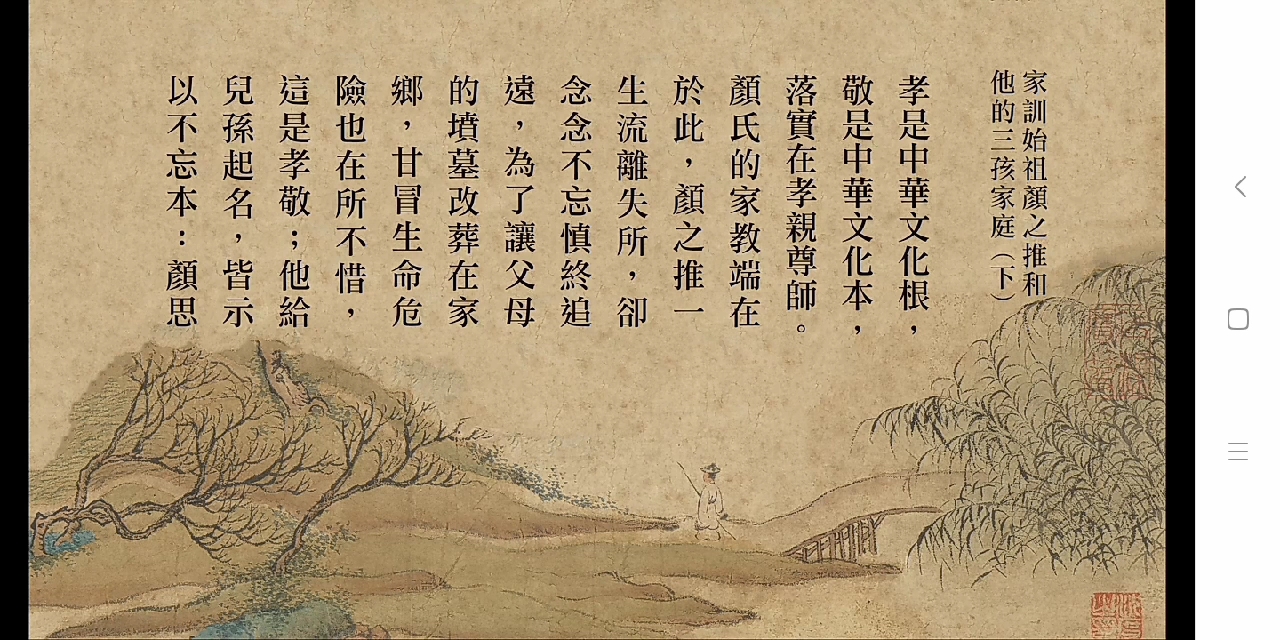 家訓始祖顏之推和
他的三孩家庭（下）
孝是中華文化根，
敬是中華文化本，
落實在孝親尊師。
顏氏的家教端在
於此，顏之推一
生流離失所，卻
念念不忘慎終追
遠，為了讓父母
的墳墓改葬在家
鄉，甘冒生命危
險也在所不惜，
這是孝敬；他給
兒孫起名，皆示
以不忘本：顏思